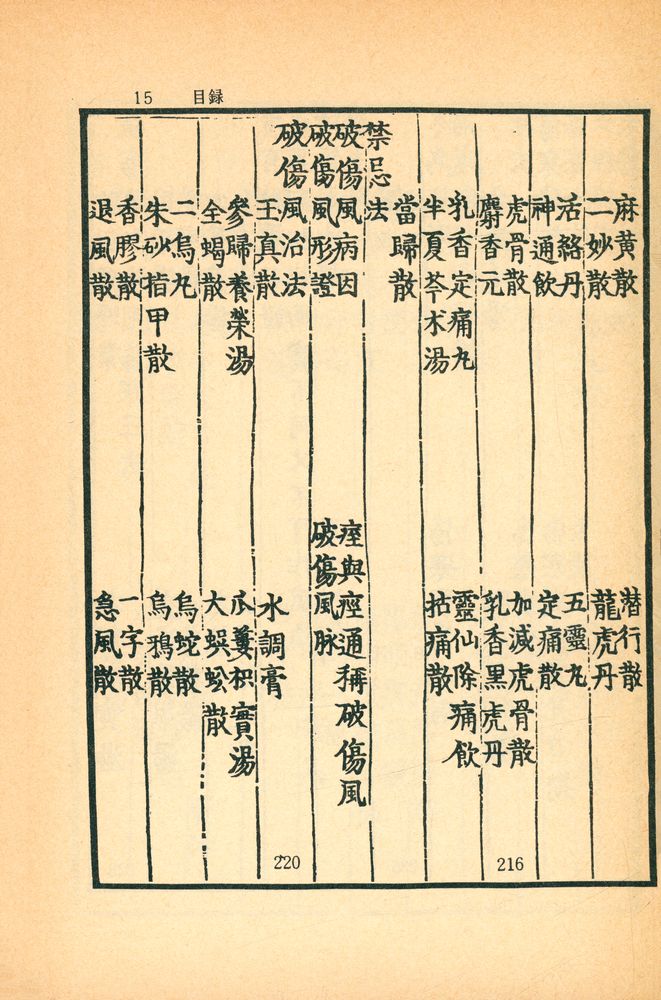 15 目録
麻黄散 潜行散
二妙散 龍虎丹
活絡丹 五靈丸
神通飲 定痛散
虎骨散 加減虎骨散
麝香元 乳香黑虎丹
216
乳香定痛丸 靈仙除痛飲
半夏苓术湯 拈痛散
當歸散
禁忌法
破傷風病因 痙與痓通稱破傷風
破傷風形證 破傷風脉
破傷風治法
220
王真散 水調膏
參歸養榮湯 瓜蔞枳實湯
全蝎散 大蜈蚣散
二烏丸 烏蛇散
朱砂指甲散 烏鴉散
香膠散 一字散
退風散 急風散